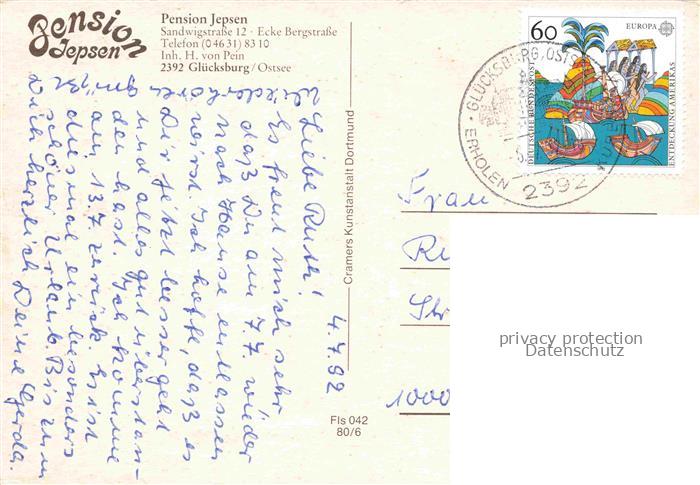 Pension
Jepsen
Pension Jepsen
Sandwigstraße 12 · Ecke Bergstraße
Telefon (0 46 31) 83 10
Inh. H. von Pein
2392 Glücksburg / Ostsee
60
EUROPA
DEUTSCHE BUNDESPOST
ENTDECKUNG AMERIKAS
GLÜCKSBURG, OSTS
ERHOLEN
2392
4.7.92
Liebe Ruth!
Es freut mich sehr
daß Du am 7.7. wieder
nach Hause entlassen
wirst. Ich hoffe, daß es
Dir jetzt besser geht
und alles gut überstan-
den hast. Ich komme
am 13.7. zurück. Es ist
diesmal ein besonders
schöner Urlaub. Bis zum
Wiederhören
grüßt
Dich herzlich Deine Gerda.
Cramers Kunstanstalt Dortmund
Fls 042
80/6
Frau
1000
privacy protection
Datenschutz